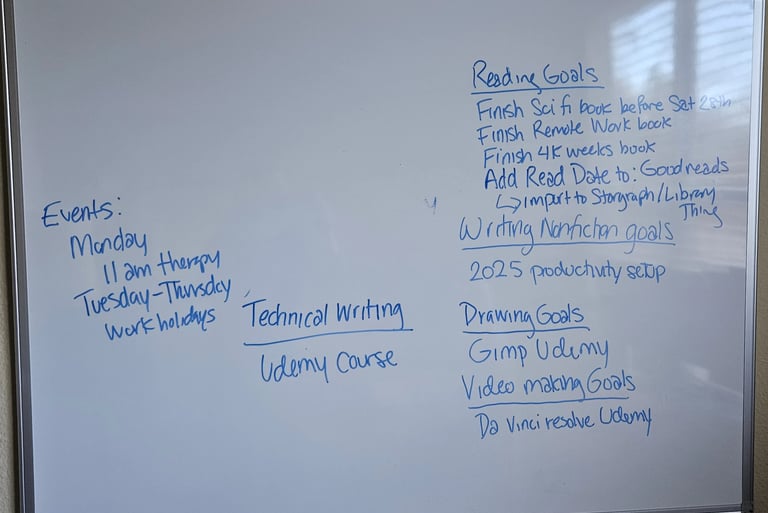 Events:
Monday
11 am therapy
Tuesday-Thursday
work holidays
Technical Writing
Udemy Course
Reading Goals
Finish Sci fi book before Sat 28th
Finish Remote Work book
Finish 4K weeks book
Add Read Date to: Goodreads
↳ import to Storygraph/Library
Thing
Writing Nonfiction goals
2025 productivity setup
Drawing Goals
Gimp Udemy
Video making Goals
Da Vinci resolve Udemy